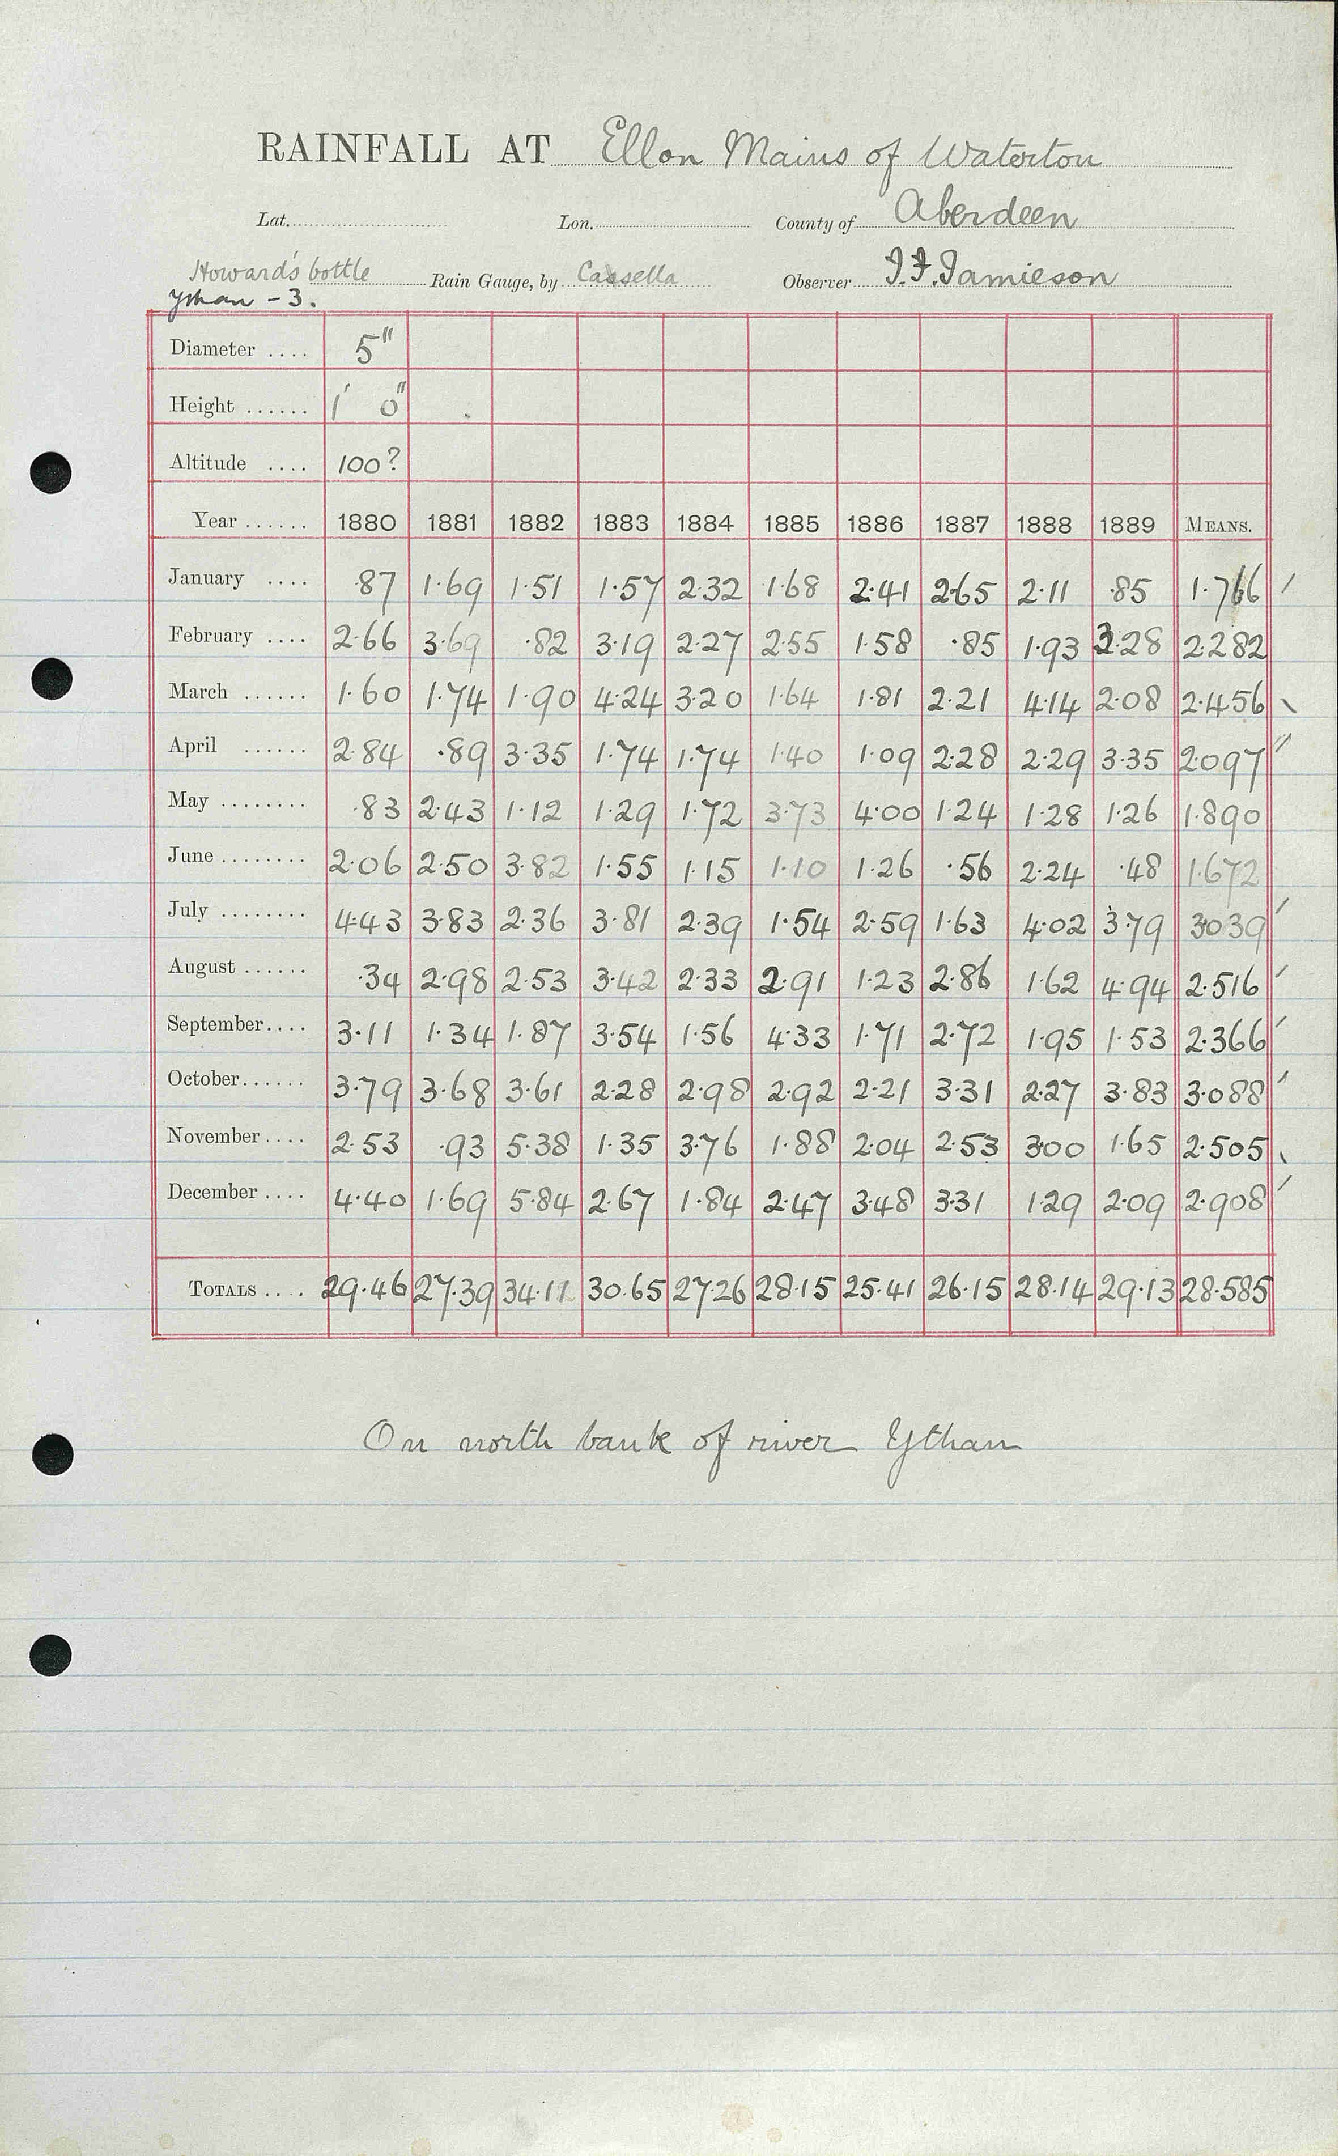 RAINFALL AT Ellon Mains of Waterton
Lat. Lon. County of Aberdeen
Howard's bottle Rain Gauge, by Casella Observer J.F. Jamieson
Ythan - 3.
Diameter .... 5"
Height ...... 1' 0"
Altitude .... 100?
Year ...... 1880 1881 1882 1883 1884 1885 1886 1887 1888 1889 MEANS.
January .... .87 1.69 1.51 1.57 2.32 1.68 2.41 2.65 2.11 .85 1.766
February .... 2.66 3.69 .82 3.19 2.27 2.55 1.58 .85 1.93 3.28 2.282
March ...... 1.60 1.74 1.90 4.24 3.20 1.64 1.81 2.21 4.14 2.08 2.456
April ...... 2.84 .89 3.35 1.74 1.74 1.40 1.09 2.28 2.29 3.35 2.097
May ........ .83 2.43 1.12 1.29 1.72 3.73 4.00 1.24 1.28 1.26 1.890
June ........ 2.06 2.50 3.82 1.55 1.15 1.10 1.26 .56 2.24 .48 1.672
July ........ 4.43 3.83 2.36 3.81 2.39 1.54 2.59 1.63 4.02 3.79 3.039
August ...... .34 2.98 2.53 3.42 2.33 2.91 1.23 2.86 1.62 4.94 2.516
September.... 3.11 1.34 1.87 3.54 1.56 4.33 1.71 2.72 1.95 1.53 2.366
October...... 3.79 3.68 3.61 2.28 2.98 2.92 2.21 3.31 2.27 3.83 3.088
November .... 2.53 .93 5.38 1.35 3.76 1.88 2.04 2.53 3.00 1.65 2.505
December .... 4.40 1.69 5.84 2.67 1.84 2.47 3.48 3.31 1.29 2.09 2.908
TOTALS .... 29.46 27.39 34.11 30.65 27.26 28.15 25.41 26.15 28.14 29.13 28.585
On north bank of river Ythan